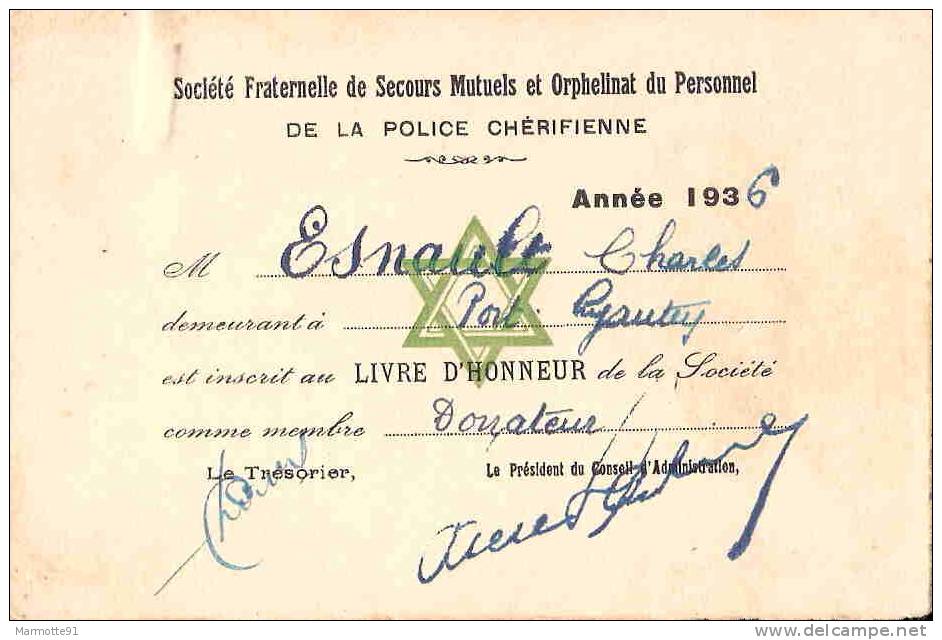 Société Fraternelle de Secours Mutuels et Orphelinat du Personnel
DE LA POLICE CHÉRIFIENNE
Année 1936
M Esnault Charles
demeurant à Port Lyautey
est inscrit au LIVRE D'HONNEUR de la Société
comme membre Donateur
Le Trésorier, Le Président du Conseil d'Administration,
Marmotte91
delcampe.net